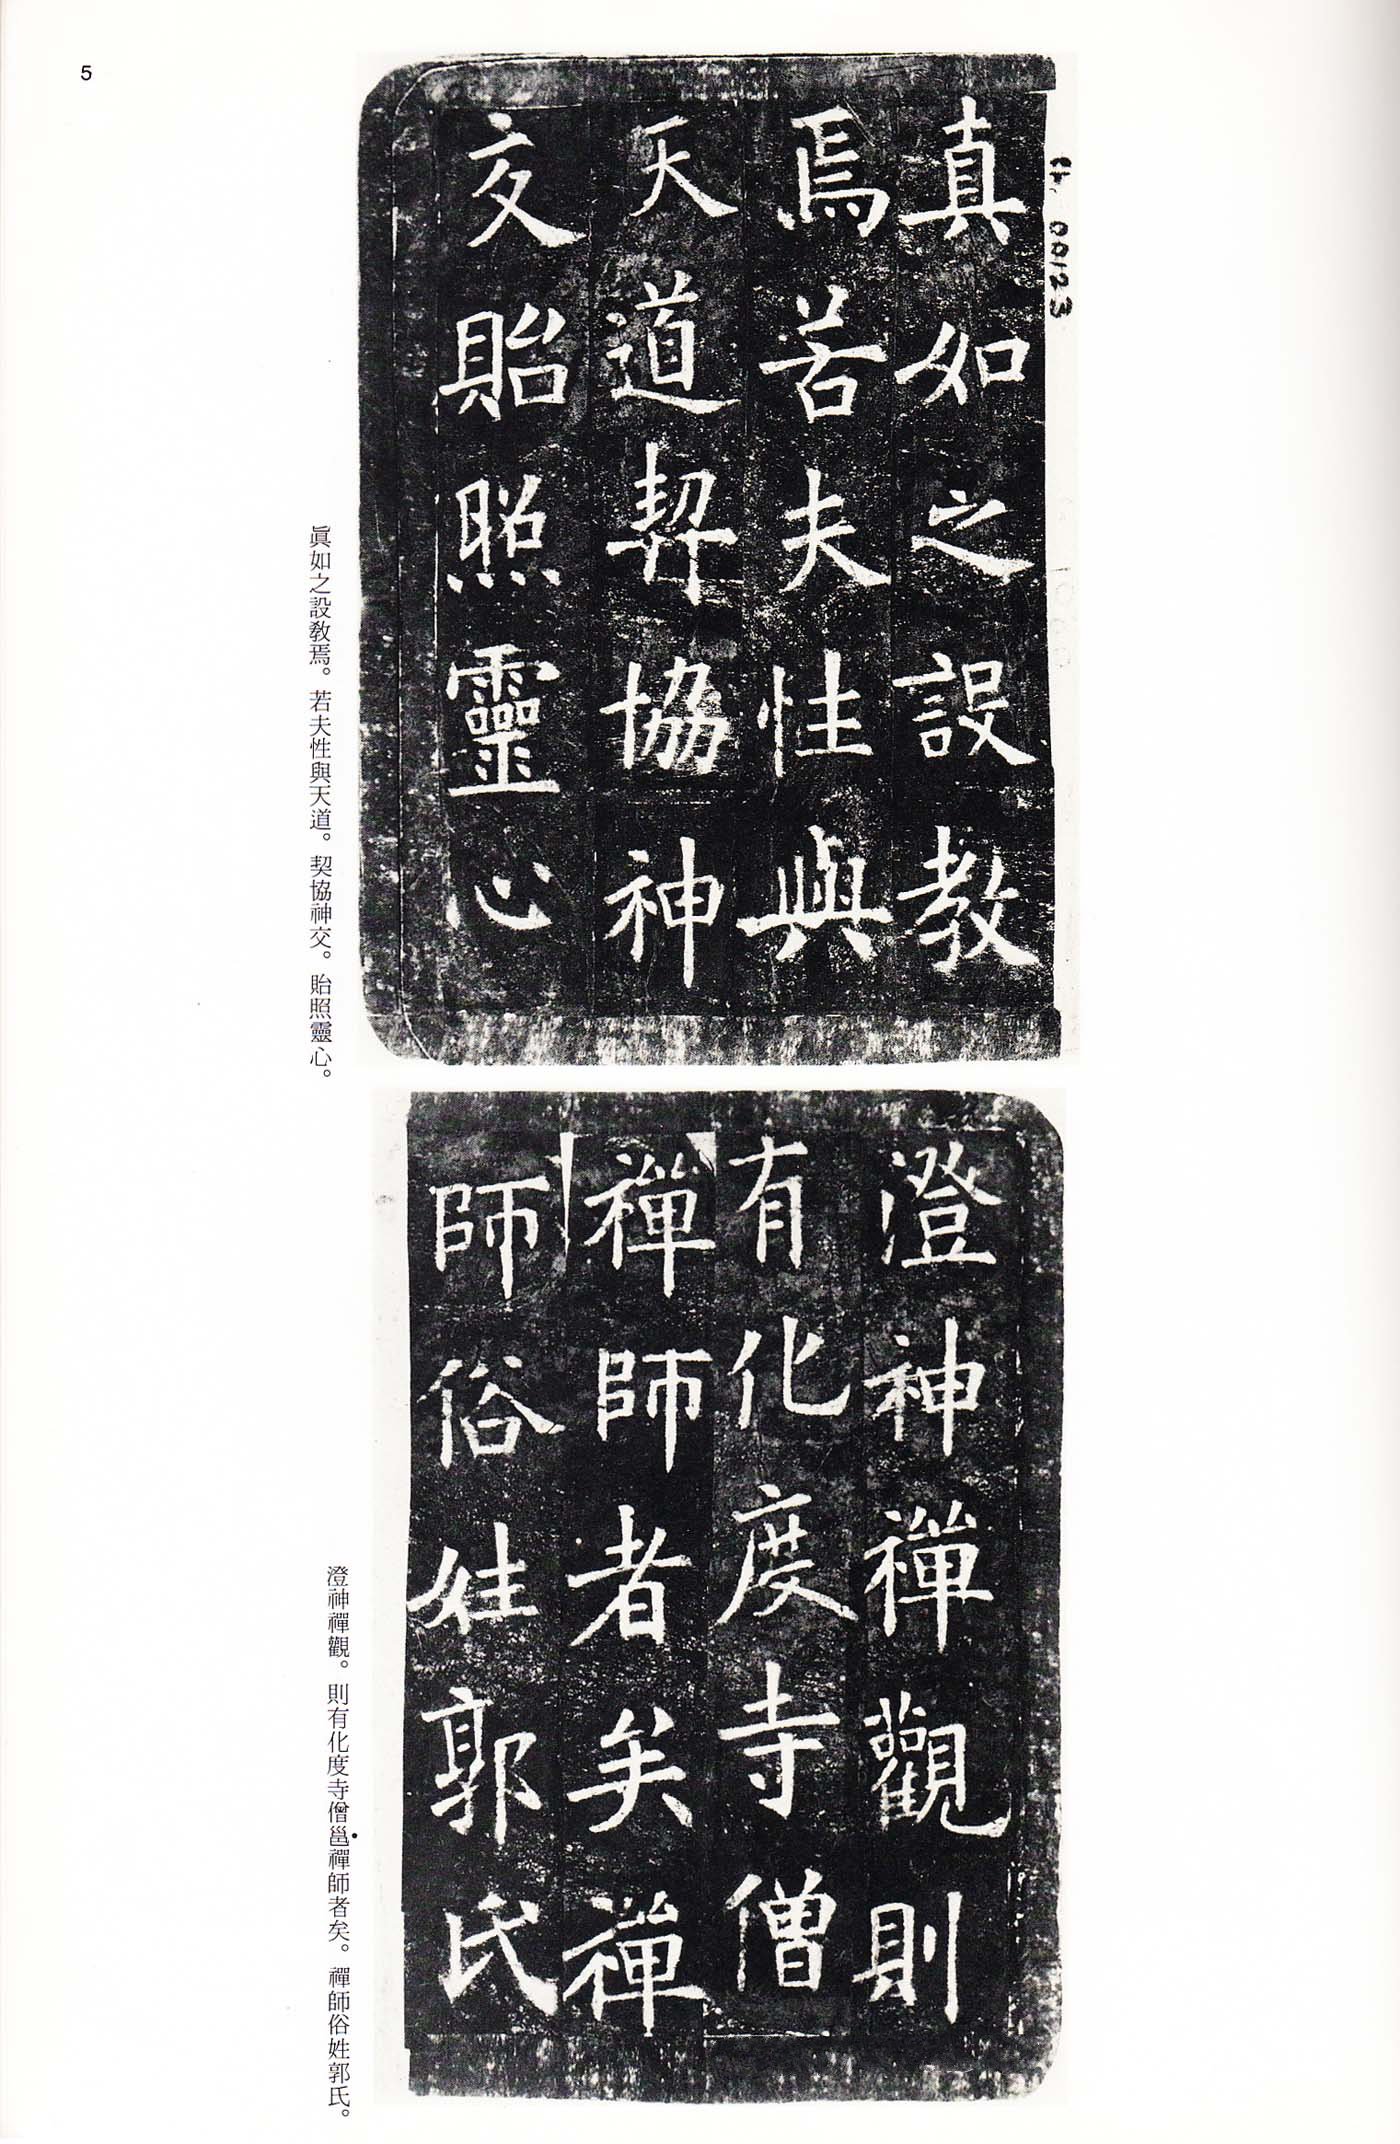 5
ch. 00123
真如之設教
焉若夫性與
天道契協神
交貽照靈心
眞如之設教焉。若夫性與天道。契協神交。貽照靈心。
澄神禪觀則
有化度寺僧
禪師者矣禪
師俗姓郭氏
澄神禪觀。則有化度寺僧邕禪師者矣。禪師俗姓郭氏。